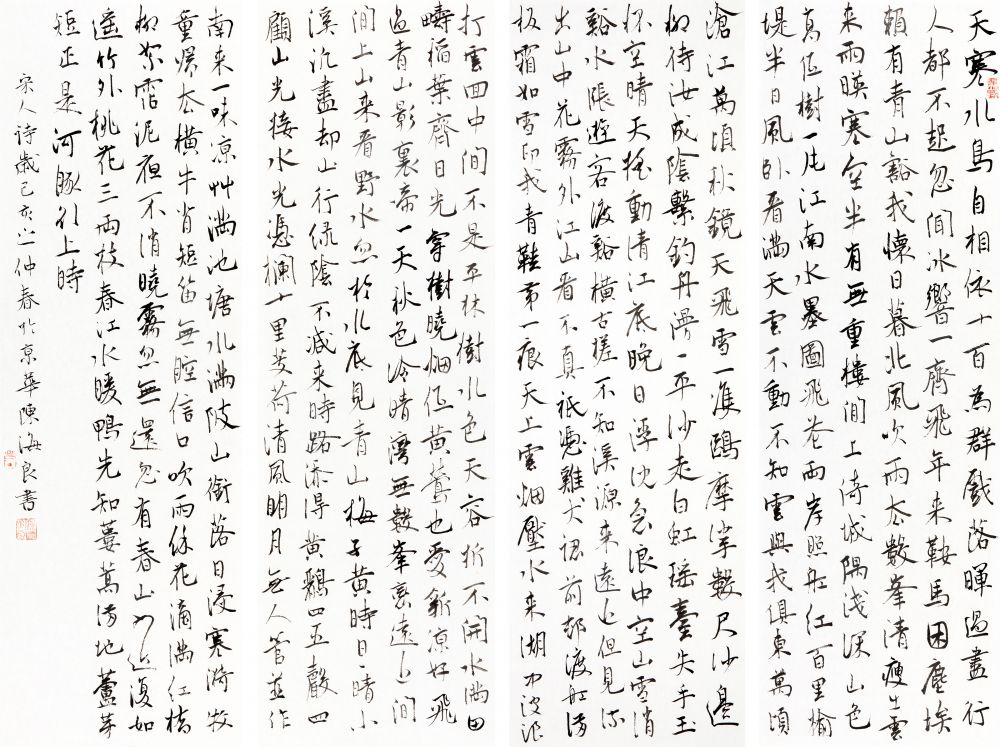 天寒水鳥自相依十百為群戲落暉過盡行
人都不起忽聞冰響一齊飛年來鞍馬困塵埃
賴有青山豁我懷日暮北風吹雨去數峯清瘦出雲
來雨暎寒空半有無重樓閒上倚城隅淺深山色
高低樹一片江南水墨圖飛花兩岸照船紅百里榆
堤半日風臥看滿天雲不動不知雲與我俱東萬頃
滄江萬頃秋鏡天飛雪一雙鷗摩挲數尺沙邊
柳待汝成陰繫釣舟漫漫平沙走白虹瑤臺失手玉
杯空晴天搖動清江底晚日浮沈急浪中空山雪消
谿水漲遊客渡谿橫古槎不知溪源來遠近但見流
出山中花霧外江山看不真祇憑雞犬認前邨渡船滿
板霜如雪印我青鞋第一痕天上雲烟壓水來湖中波浪
打雲回中間不是平林樹水色天容拆不開水滿田
疇稻葉齊日光穿樹曉烟低黃鶯也愛新涼好飛
過青山影裏啼一天秋色冷晴灣無數峯巒遠近間
閒上山來看野水忽於水底見青山梅子黃時日日晴小
溪汎盡却山行綠陰不減來時路添得黃鸝四五聲四
顧山光接水光憑欄十里芰荷清風明月無人管並作
南來一味涼艸滿池塘水滿陂山銜落日浸寒漪牧
童歸去橫牛背短笛無腔信口吹雨餘花滴滿紅橋
柳絮霑泥夜不消曉霧忽無還忽有春山如近復如
遙竹外桃花三兩枝春江水暖鴨先知蔞蒿滿地蘆芽
短正是河豚欲上時
宋人詩歲己亥之仲春於京華陳海良書